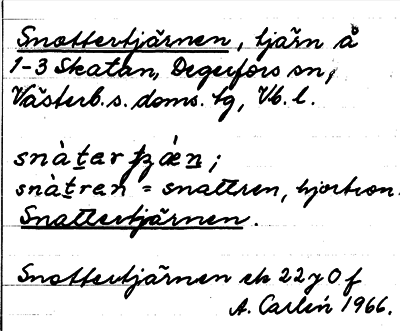 Snottertjärnen, tjärn å
1-3 Skatan, Degerfors sn,
Västerb. s. doms. tg, Vb. l.
snàṯar tjæ̀ṉ;
snàṯran = snattren, hjortron.
Snattertjärnen.
Snottertjärnen ek 22 y 0 f
A. Carlén 1966.